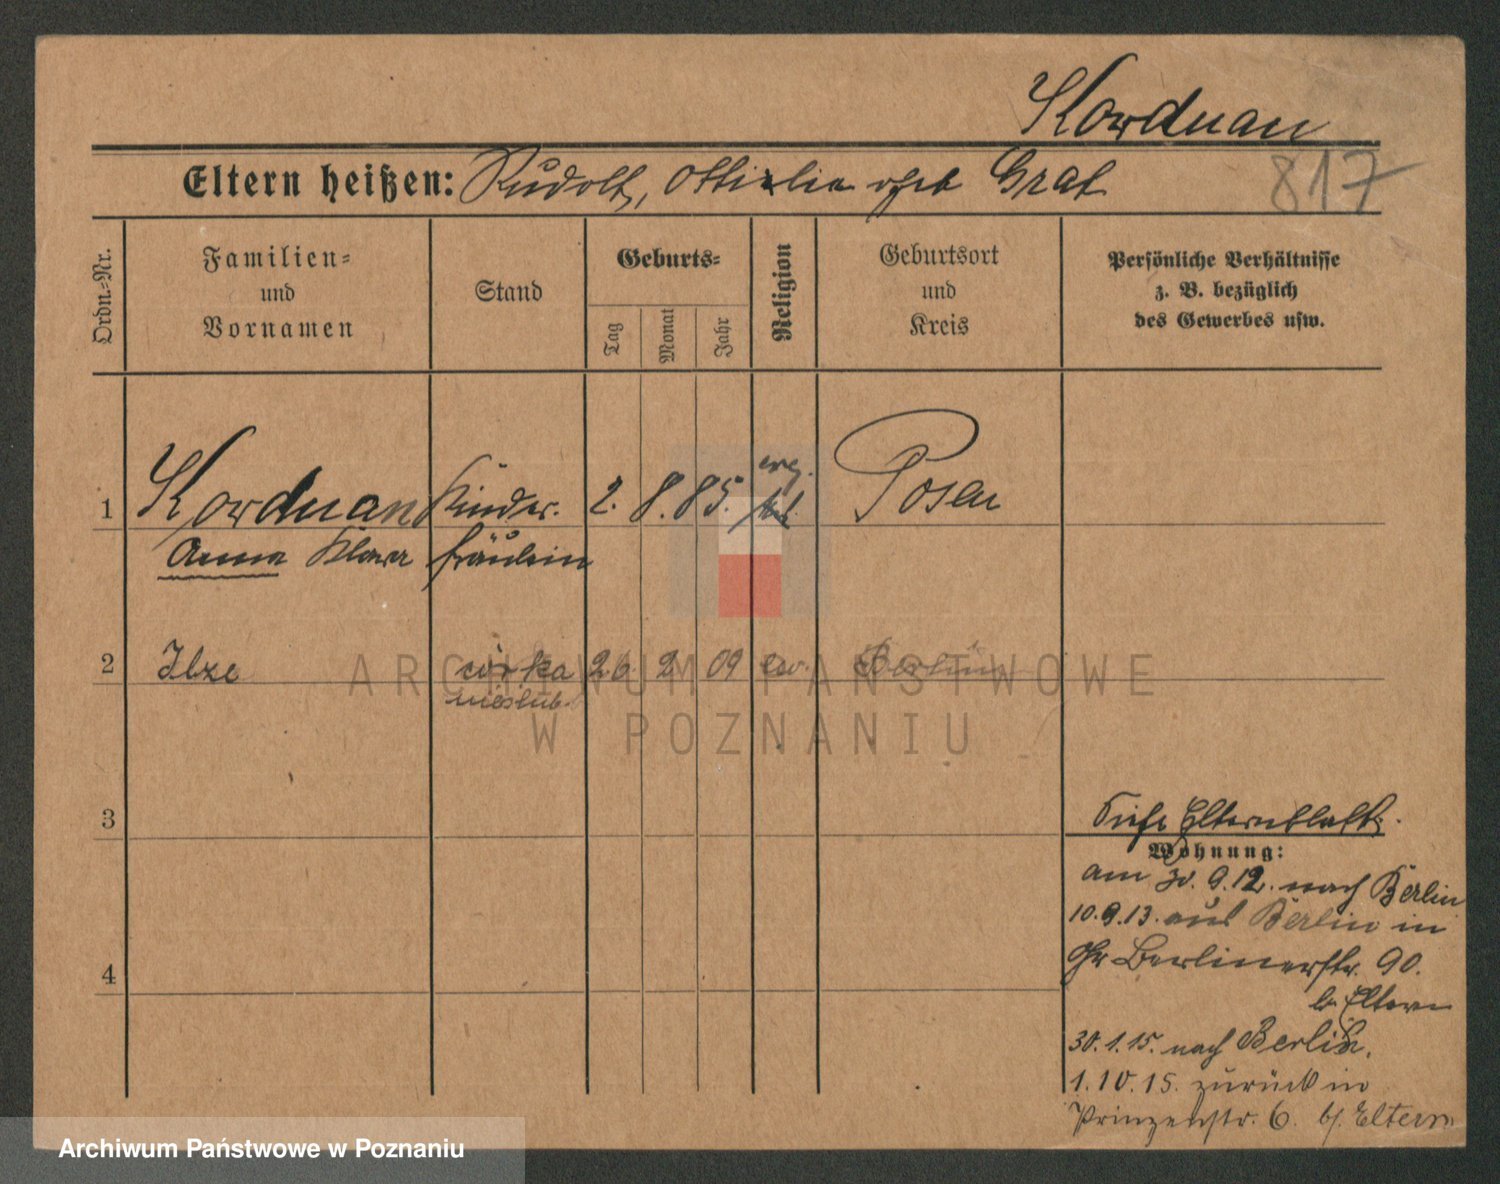 Korduan
Eltern heißen: Rudolf, Ottilie geb Graf
817
Ordn.=Nr.
Familien=
und
Vornamen
Stand
Geburts=
Tag
Monat
Jahr
Religion
Geburtsort
und
Kreis
Persönliche Verhältnisse
z. B. bezüglich
des Gewerbes usw.
1 Korduan Kinder. 2. 8. 85. evg. Posen
Anna Klara fräulein
2 Ilze córka 26 2 09 ew. Berlin
nieślub.
3
Siehe Elternblatt.
Wohnung:
am 30. 9. 12. nach Berlin
10.9.13. aus Berlin in
Gr Berlinerstr. 90.
b. Eltern
4
30.1.15. nach Berlin.
1.10.15. zurück in
Prinzenstr. 6. b/. Eltern
ARCHIWUM PAŃSTWOWE
W POZNANIU
Archiwum Państwowe w Poznaniu